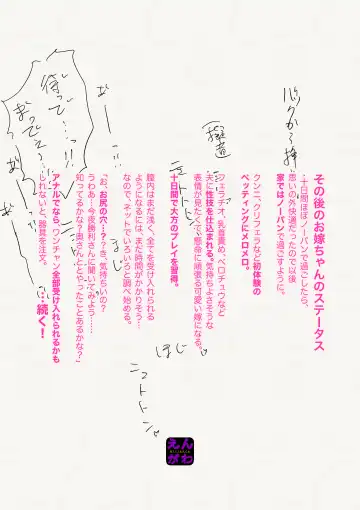 その後のお嫁ちゃんのステータス
…十日間ほぼノーパンで過ごしたら、
思いの外快適だったので以後
家ではノーパンで過ごすように。
クンニ、クリフェラなど初体験の
ペッティングにメロメロ。
フェラチオ、乳首責め、ベロチュウなど
夫に性技を仕込まれる。気持ちよさそうな
表情が見たくて懸命に頑張る可愛い嫁になる。
十日間で大方のプレイを習得。
膣内はまだ浅く、全てを受け入れられる
ようになるには、まだ時間がかかりそう…
なので、ネットでいろいろと調べ始める。
「お、お尻の穴…??き、気持ちいいの?
うわあ…今度勝利さんに聞いてみよう……
知ってるかな?奥さんととやったことあるかな?」
アナルでなら、ワンチャン全部受け入れられるかも
しれないと、器具を注文。
……続く!
待って…っ!!
まって
ほじ
えん
がわ